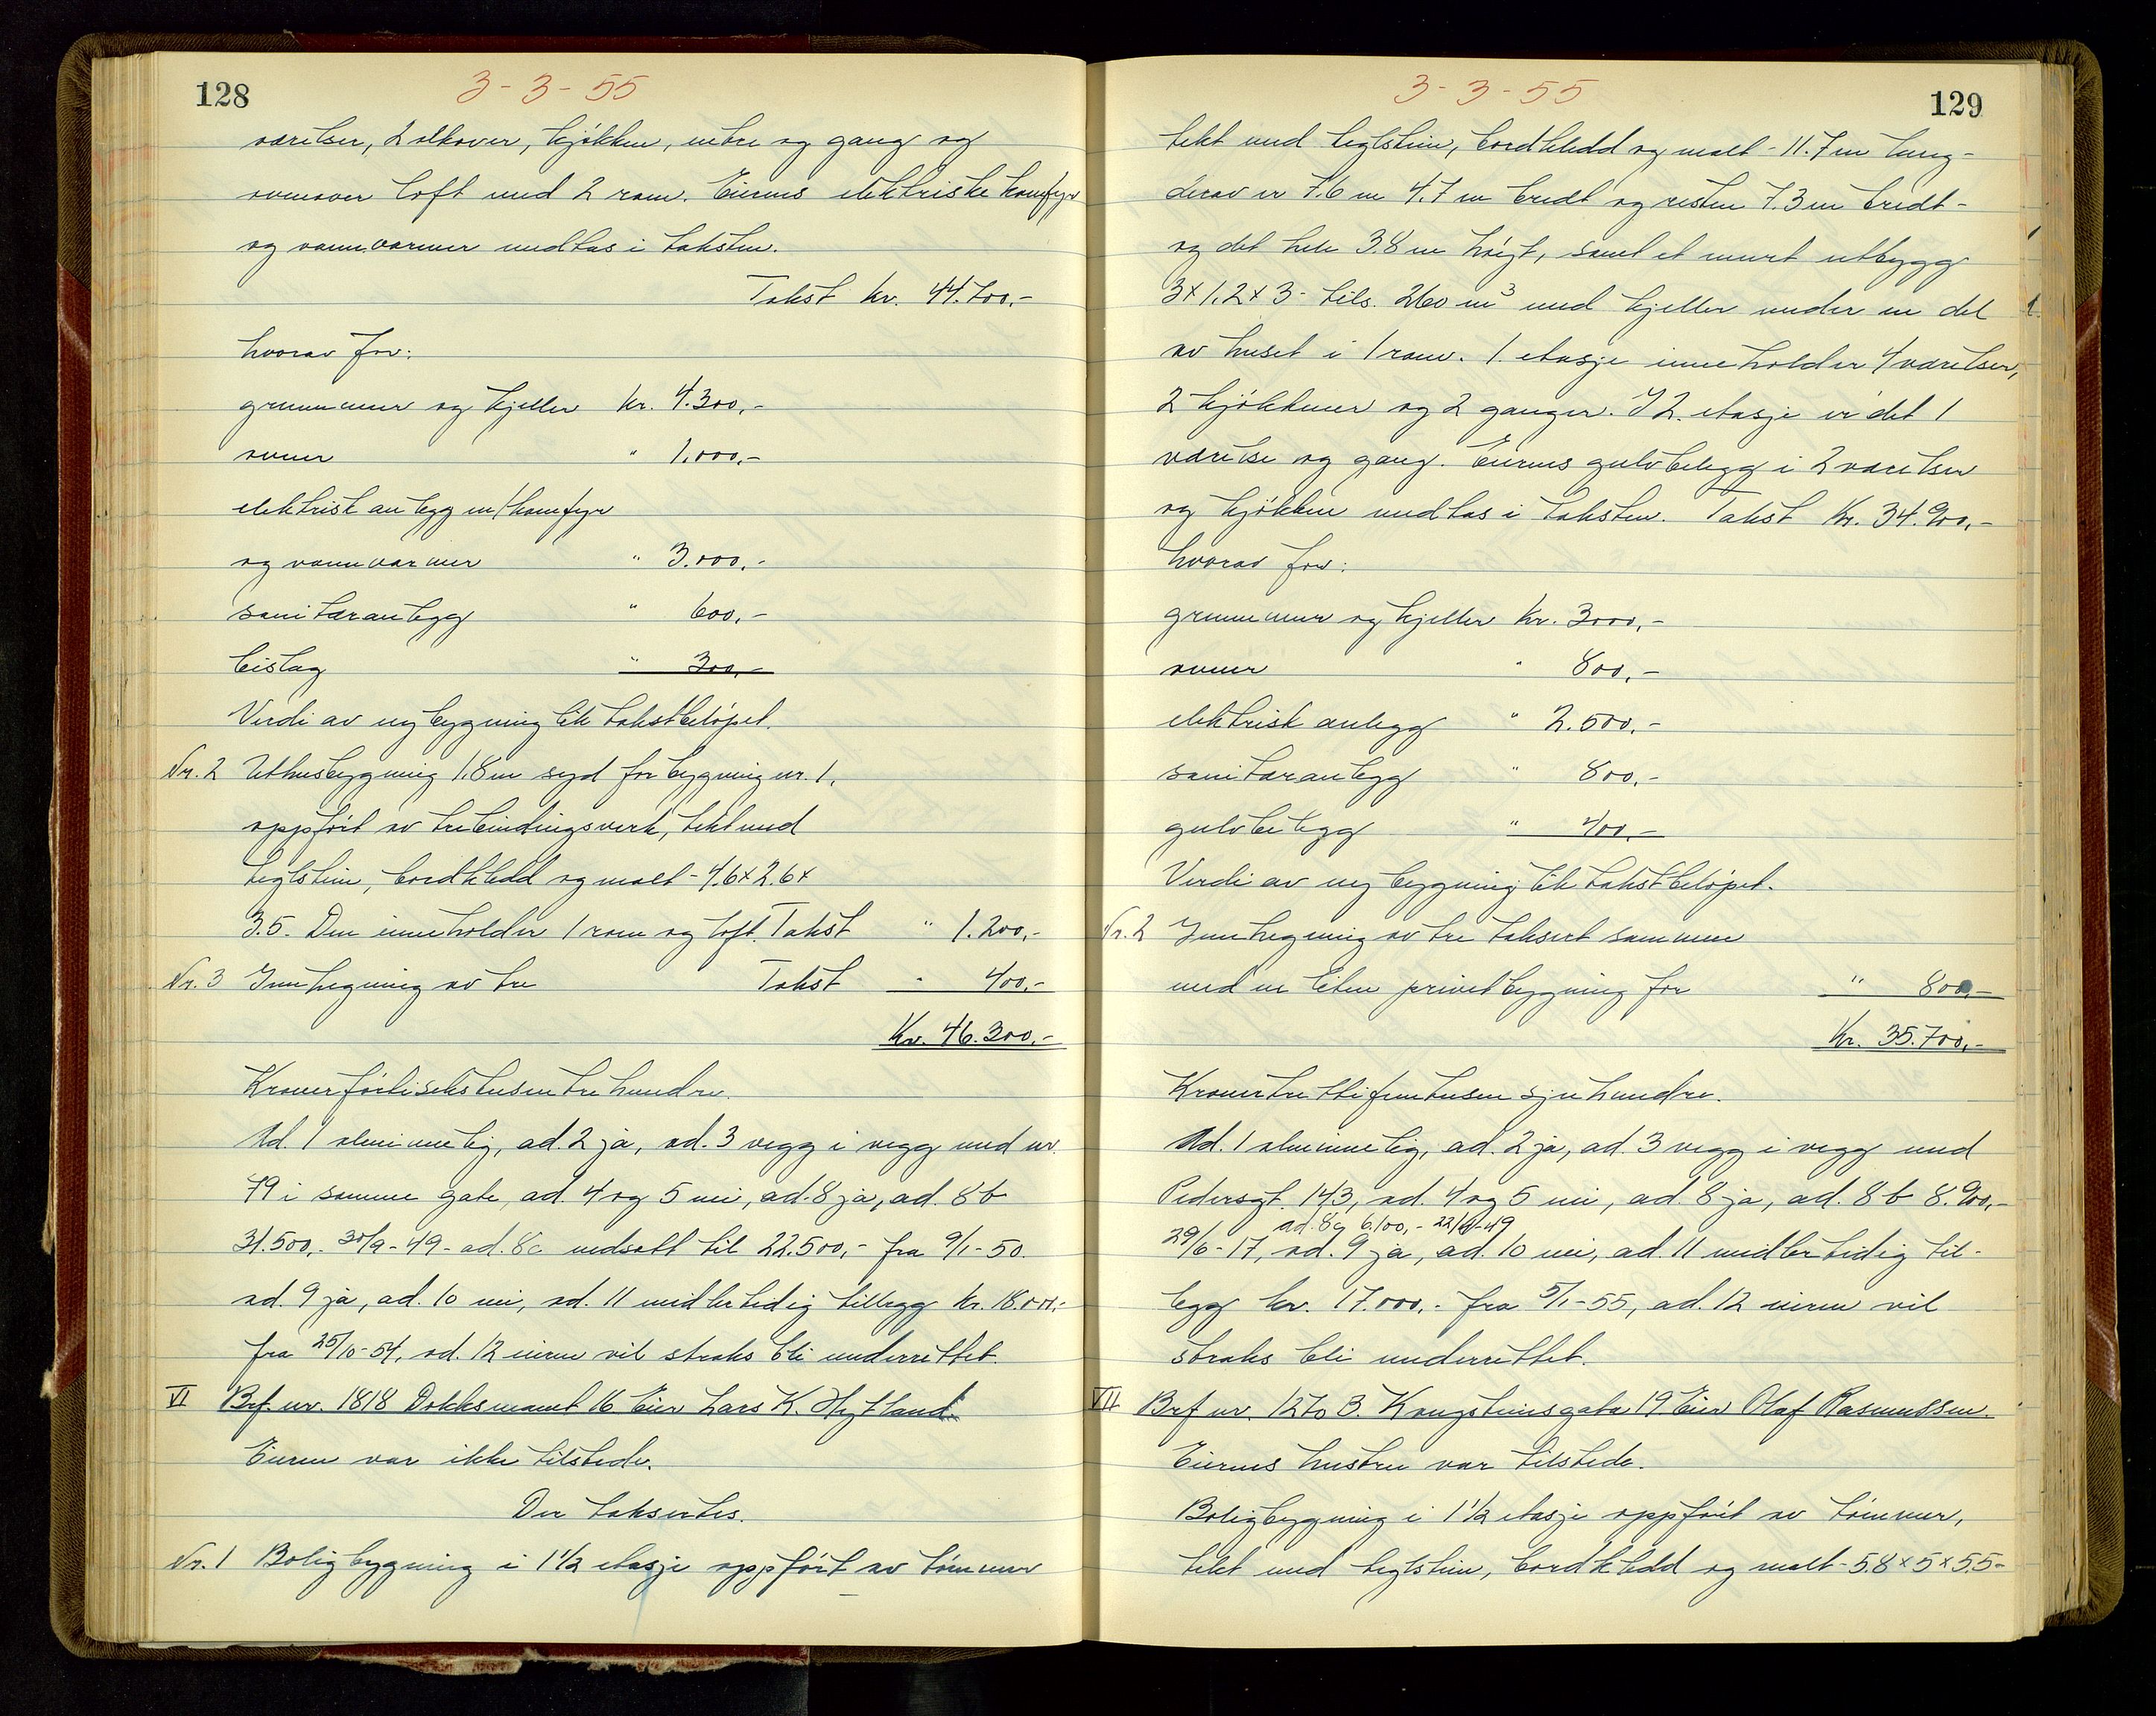 128
3-3-55
værelser, 2 alkover, kjøkken, entre og gang og
ovenover loft med 2 rom. Eierens elektriske komfyr
og vannvarmer medtas i taksten.
Takst kr. 44.700,-
hvorav for:
grunnmur og kjeller kr. 4.300,-
ovner " 1.000,-
elektrisk anlegg m/komfyr
og vannvarmer " 3.000,-
sanitæranlegg " 600,-
beslag " 300,-
Verdi av ny bygning lik takstbeløpet.
Nr. 2 Uthusbygning 1.8 m syd for bygning nr. 1,
oppført av trebindingsverk, tekt med
teglstein, bordkledd og malt - 4.6 x 2.6 x
3.5. Den inneholder 1 rom og loft. Takst " 1.200,-
Nr. 3 Innhegning av tre Takst " 400,-
Kr. 46.300,-
Kroner førtisekstusentrehundre.
Ad. 1 alminnelig, ad. 2 ja, ad. 3 vegg i vegg med nr.
79 i samme gate, ad. 4 og 5 nei, ad. 8 ja, ad. 8 b
31.500,- 30/9-49- ad. 8c nedsatt til 22.500,- fra 9/1-50.
ad. 9 ja, ad. 10 nei, ad. 11 midlertidig tillegg kr. 18.000,-
fra 25/10-54, ad. 12 eieren vil straks bli underrettet.
VI Brf. nr. 1818 Dokksmauet 16 Eier Lars K. Hytland.
Eieren var ikke tilstede.
Der taksertes.
Nr. 1 Boligbygning i 1 1/2 etasje oppført av tømmer
129
3-3-55
tekt med teglstein, bordkledd og malt - 11.7 m lang -
derav er 7.6 m 4.7 m bredt og resten 7.3 m bredt -
og det hele 3.8 m høigt, samt et murt utbygg
3 x 1.2 x 3 - tils. 260 m3 med kjeller under en del
av huset i 1 rom. 1. etasje inneholder 4 værelser,
2 kjøkkener og 2 ganger. I 2. etasje er det 1
værelse og gang. Eierens gulvbelegg i 2 værelser
og kjøkken medtas i taksten. Takst Kr. 34.900,-
hvorav for:
grunnmur og kjeller kr. 3000,-
ovner " 800,-
elektrisk anlegg " 2.500,-
sanitæranlegg " 800,-
gulvbelegg " 400,-
Verdi av ny bygning lik takstbeløpet.
Nr. 2 Innhegning av tre taksert sammen
med en liten privetbygning for " 800,-
Kr. 35.700,-
Kroner trettifemtusensjuhundre.
Ad. 1 alminnelig, ad. 2 ja, ad. 3 vegg i vegg med
Pedersgt. 143, ad. 4 og 5 nei, ad. 8 ja, ad. 8 b 8.900,-
ad. 8c 6.100,-
29/6-17, ad. 9 ja, ad. 10 nei, ad. 11 midlertidig til-
legg kr. 17.000,- fra 5/1-55, ad. 12 eieren vil
straks bli underrettet.
VII Brf nr. 1270 B. Kongsteinsgata 19 Eier Olaf Rasmussen.
Eierens hustru var tilstede.
Boligbygning i 1 1/2 etasje oppført av tømmer,
tekt med teglstein, bordkledd og malt - 5.8 x 5 x 5.5 -